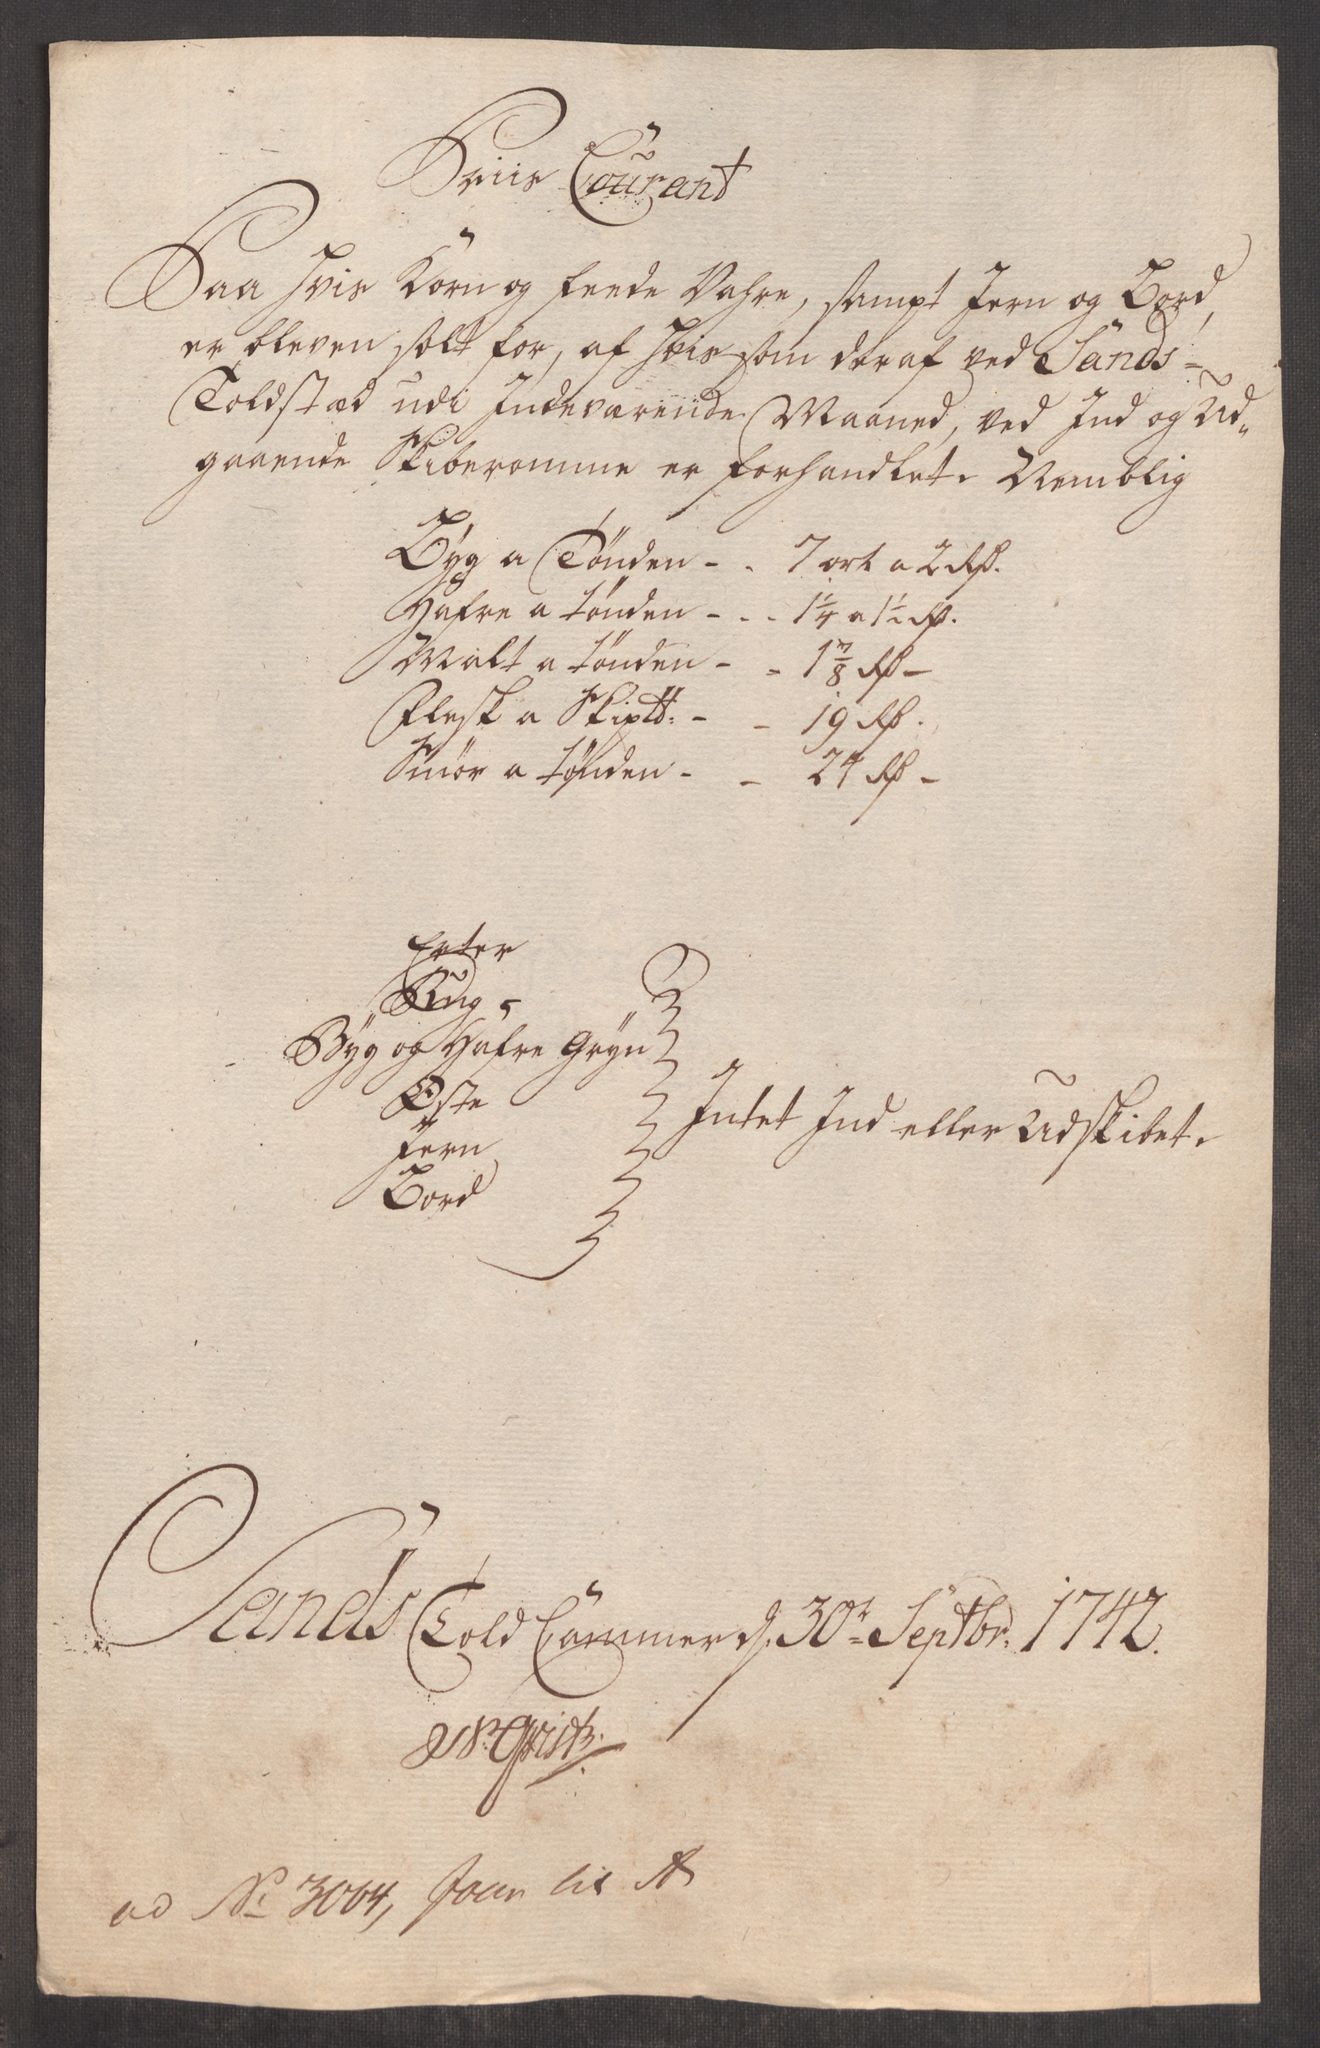 Priis Courant
Paa hvis Korn og feede Vahre, sampt Jern og Bord,
er bleven solt for, af hvis som deraf ved Sands-
Toldstæd udi Indeværende Maaned, ved Ind og Ud-
gaaende Skiberomme er forhandlet. Nemblig
Byg a Tønden - - 7 ort a 2 Rd.
Hafre a tønden - - - 1 1/4 a 1 1/2 Rd.
Malt a tønden - - 1 7/8 Rd -
Flesk a Skip℔: - - 19 Rd.
Smør a tønden - - 24 Rd -
Erter
Rug
Byg og Hafre Gryn
Oste
Jern
Bord
Intet Ind eller Udskibet.
Sands Told Cammer d. 30te Septbr. 1742.
ad No 3064, Jour lit A